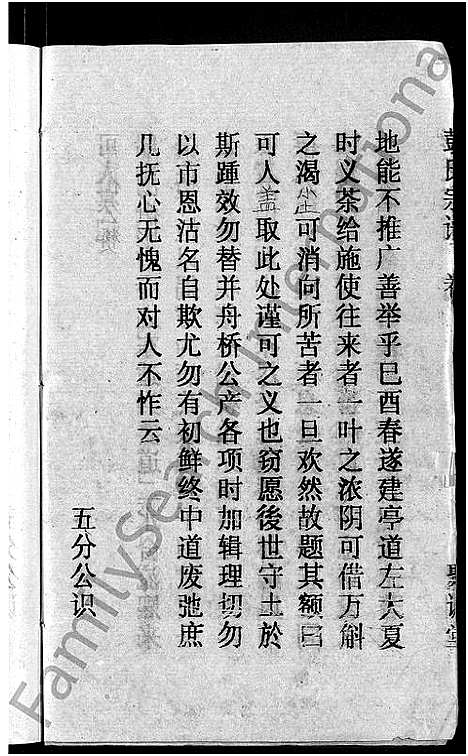 彭氏宗谱 卷
聚 堂
地能不推广善举乎巳酉春遂建亭道左大夏
时义茶给施使往来者一叶之浓阴可借万斛
之渴尘可消向所苦者一旦欢然故题其额曰
可人盖取此处谨可之义也窃愿後世守土於
斯踵效勿替并舟桥公产各项时加辑理切勿
以市恩沽名自欺尤勿有初鲜终中道废弛庶
几抚心无愧而对人不怍云
五分公识
FamilySearch International